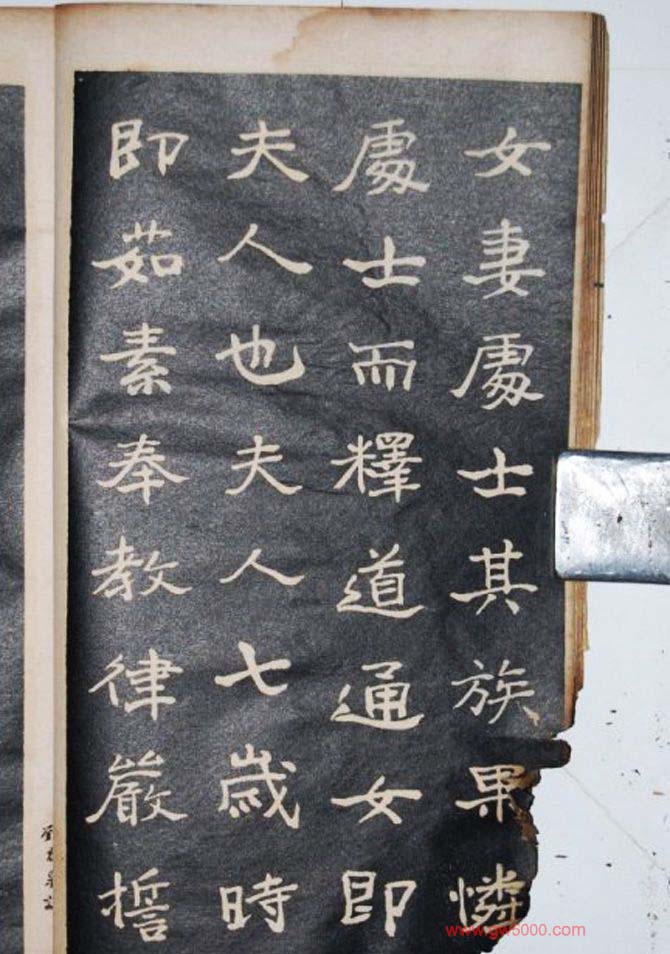 女妻處士其族果憐
處士而釋道通女即
夫人也夫人七歲時
即茹素奉教律嚴誓
www.gw5000.com